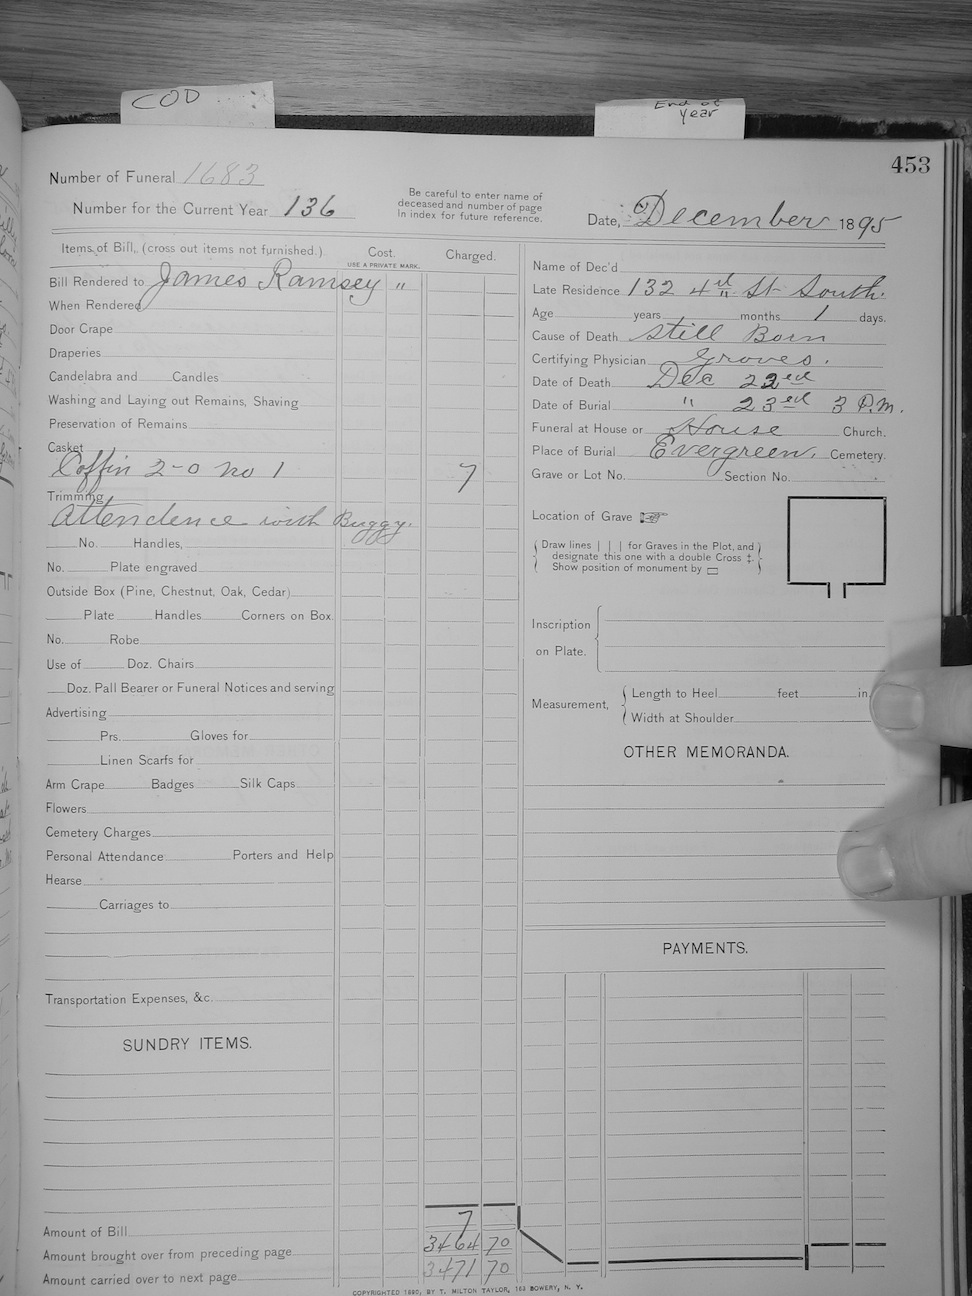 COD
End of
year
453
Number of Funeral 1683
Number for the Current Year 136
Be careful to enter name of
deceased and number of page
in index for future reference.
Date, December 1895
Items of Bill, (cross out items not furnished.)
Cost.
USE A PRIVATE MARK.
Charged.
Bill Rendered to James Ramsey "
When Rendered
Door Crape
Draperies
Candelabra and Candles
Washing and Laying out Remains, Shaving
Preservation of Remains
Casket
Coffin 2-0 no 1 7
Trimming
Attendence with Buggy.
No. Handles,
No. Plate engraved
Outside Box (Pine, Chestnut, Oak, Cedar)
Plate Handles Corners on Box.
No. Robe
Use of Doz. Chairs
Doz. Pall Bearer or Funeral Notices and serving
Advertising
Prs. Gloves for
Linen Scarfs for
Arm Crape Badges Silk Caps
Flowers
Cemetery Charges
Personal Attendance Porters and Help
Hearse
Carriages to
Transportation Expenses, &c.
SUNDRY ITEMS.
Amount of Bill 7
Amount brought over from preceding page 3464 70
Amount carried over to next page 3471 70
Name of Dec'd
Late Residence 132 4th St South.
Age years months 1 days.
Cause of Death Still Born
Certifying Physician Groves.
Date of Death Dec 22ed
Date of Burial " 23ed 3 P.M.
Funeral at House or House Church.
Place of Burial Evergreen. Cemetery.
Grave or Lot No. Section No.
Location of Grave ☞
Draw lines | | | for Graves in the Plot, and
designate this one with a double Cross ‡.
Show position of monument by ▭
Inscription
on Plate.
Measurement,
Length to Heel feet in.
Width at Shoulder
OTHER MEMORANDA.
PAYMENTS.
COPYRIGHTED 1890, BY T. MILTON TAYLOR, 163 BOWERY, N. Y.